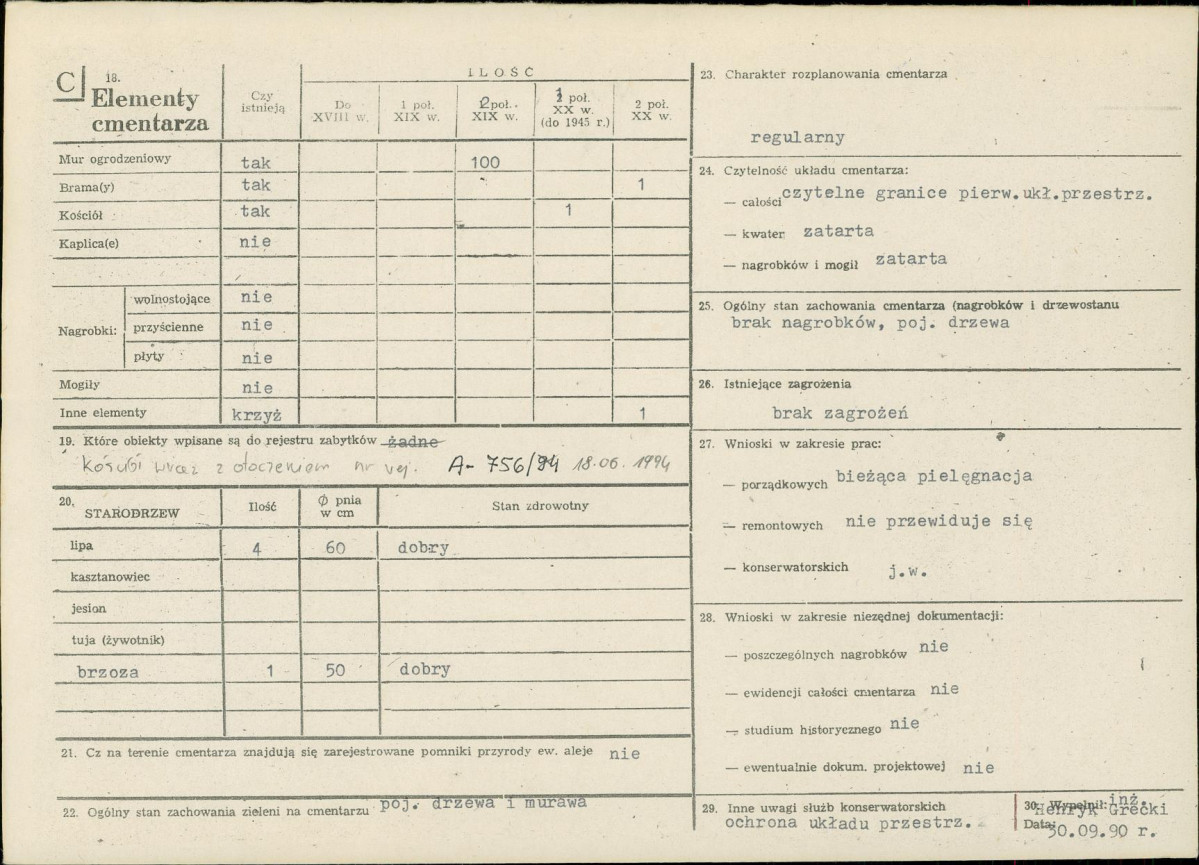 C 18. Elementy cmentarza
Czy istnieją
ILOŚĆ
Do XVIII w.
1 poł. XIX w.
2 poł. XIX w.
1 poł. XX w. (do 1945 r.)
2 poł. XX w.
Mur ogrodzeniowy tak 100
Brama(y) tak 1
Kościół tak 1
Kaplica(e) nie
Nagrobki:
wolnostojące nie
przyścienne nie
płyty nie
Mogiły nie
Inne elementy krzyż 1
19. Które obiekty wpisane są do rejestru zabytków żadne
Kościół wraz z otoczeniem nr rej. A-756/94 18.06.1994
20. STARODRZEW Ilość Ø pnia w cm Stan zdrowotny
lipa 4 60 dobry
kasztanowiec
jesion
tuja (żywotnik)
brzoza 1 50 dobry
21. Cz na terenie cmentarza znajdują się zarejestrowane pomniki przyrody ew. aleje nie
22. Ogólny stan zachowania zieleni na cmentarzu poj. drzewa i murawa
23. Charakter rozplanowania cmentarza
regularny
24. Czytelność układu cmentarza:
— całości czytelne granice pierw.ukł.przestrz.
— kwater zatarta
— nagrobków i mogił zatarta
25. Ogólny stan zachowania cmentarza (nagrobków i drzewostanu
brak nagrobków, poj. drzewa
26. Istniejące zagrożenia
brak zagrożeń
27. Wnioski w zakresie prac:
— porządkowych bieżąca pielęgnacja
— remontowych nie przewiduje się
— konserwatorskich j.w.
28. Wnioski w zakresie niezędnej dokumentacji:
— poszczególnych nagrobków nie
— ewidencji całości cmentarza nie
— studium historycznego nie
— ewentualnie dokum. projektowej nie
29. Inne uwagi służb konserwatorskich
ochrona układu przestrz.
30. Wypełnił: inż.
Henryk Grecki
Data: 30.09.90 r.